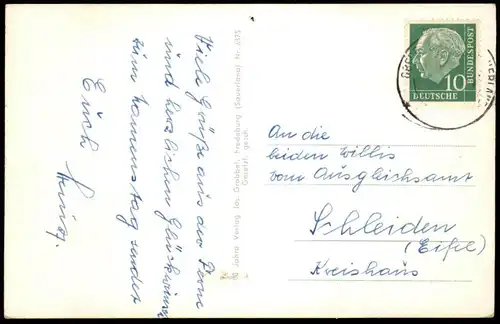 Viele Grüße aus der Ferne
und herzlichen Glückwunsch
zum Namenstag sendet
Euch
Heinz.
Jahre Verlag Jos. Grobbel, Fredeburg (Sauerland) Nr. 6575
Gesetzl. gesch.
10
DEUTSCHE BUNDESPOST
An die
beiden Willis
vom Ausgleichsamt
Schleiden
(Eifel)
Kreishaus